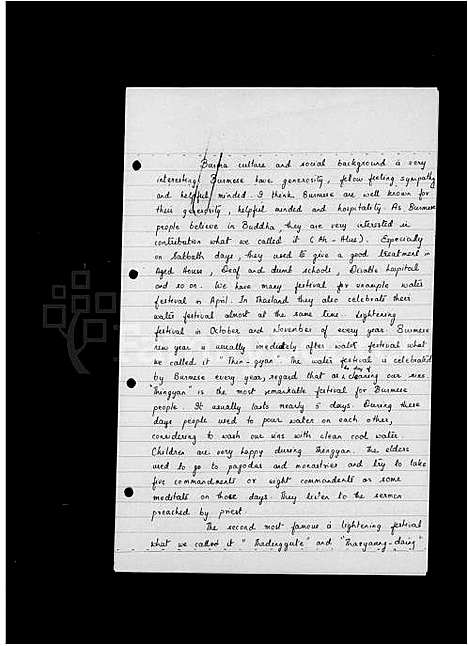 Burma culture and social background is very
interesting. Burmese have generosity, fellow feeling sympathy
and helpful minded. I think Burmese are well known for
their generosity, helpful minded and hospitality. As Burmese
people believe in Buddha, they are very interested in
contribution what we called it (Ah-Hlus). Especially
on Sabbath days, they used to give a good treatment in
Aged House, Deaf and dumb schools, Disable hospital
and so on. We have many festival for example water
festival in April. In Thailand they also celebrate their
water festival almost at the same time. Lightening
festival in October and November of every year. Burmese
new year is usually imediately after water festival what
we called it "Thin-gyan". The water festival is celebrated
by Burmese every year, regard that as the day of cleaning our sins.
"Thingyan" is the most remarkable festival for Burmese
people. It usually lasts nearly 5 days. During these
days people used to pour water on each other,
considering to wash our sins with clean cool water.
Children are very happy during Thingyan. The elders
used to go to pagodas and monastries and try to take
five commandments or eight commandents or some
meditate on those days. They listen to the sermon
preached by priest.
The second most famous is lightening festival
what we called it " Thadinggyute" and